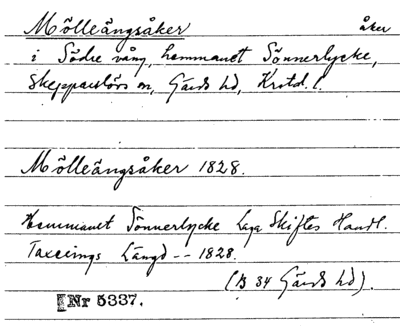 Mölleängsåker åker
i Södre vång, hemmanet Sönnerlycke,
Skepparslövs sn, Gärds hd, Krstd. l.
Mölleängsåker 1828.
Hemmanet Sönnerlycke Laga Skiftes Handl.
Taxerings Längd -- 1828.
(B 34 Gärds hd).
Nr 5337.